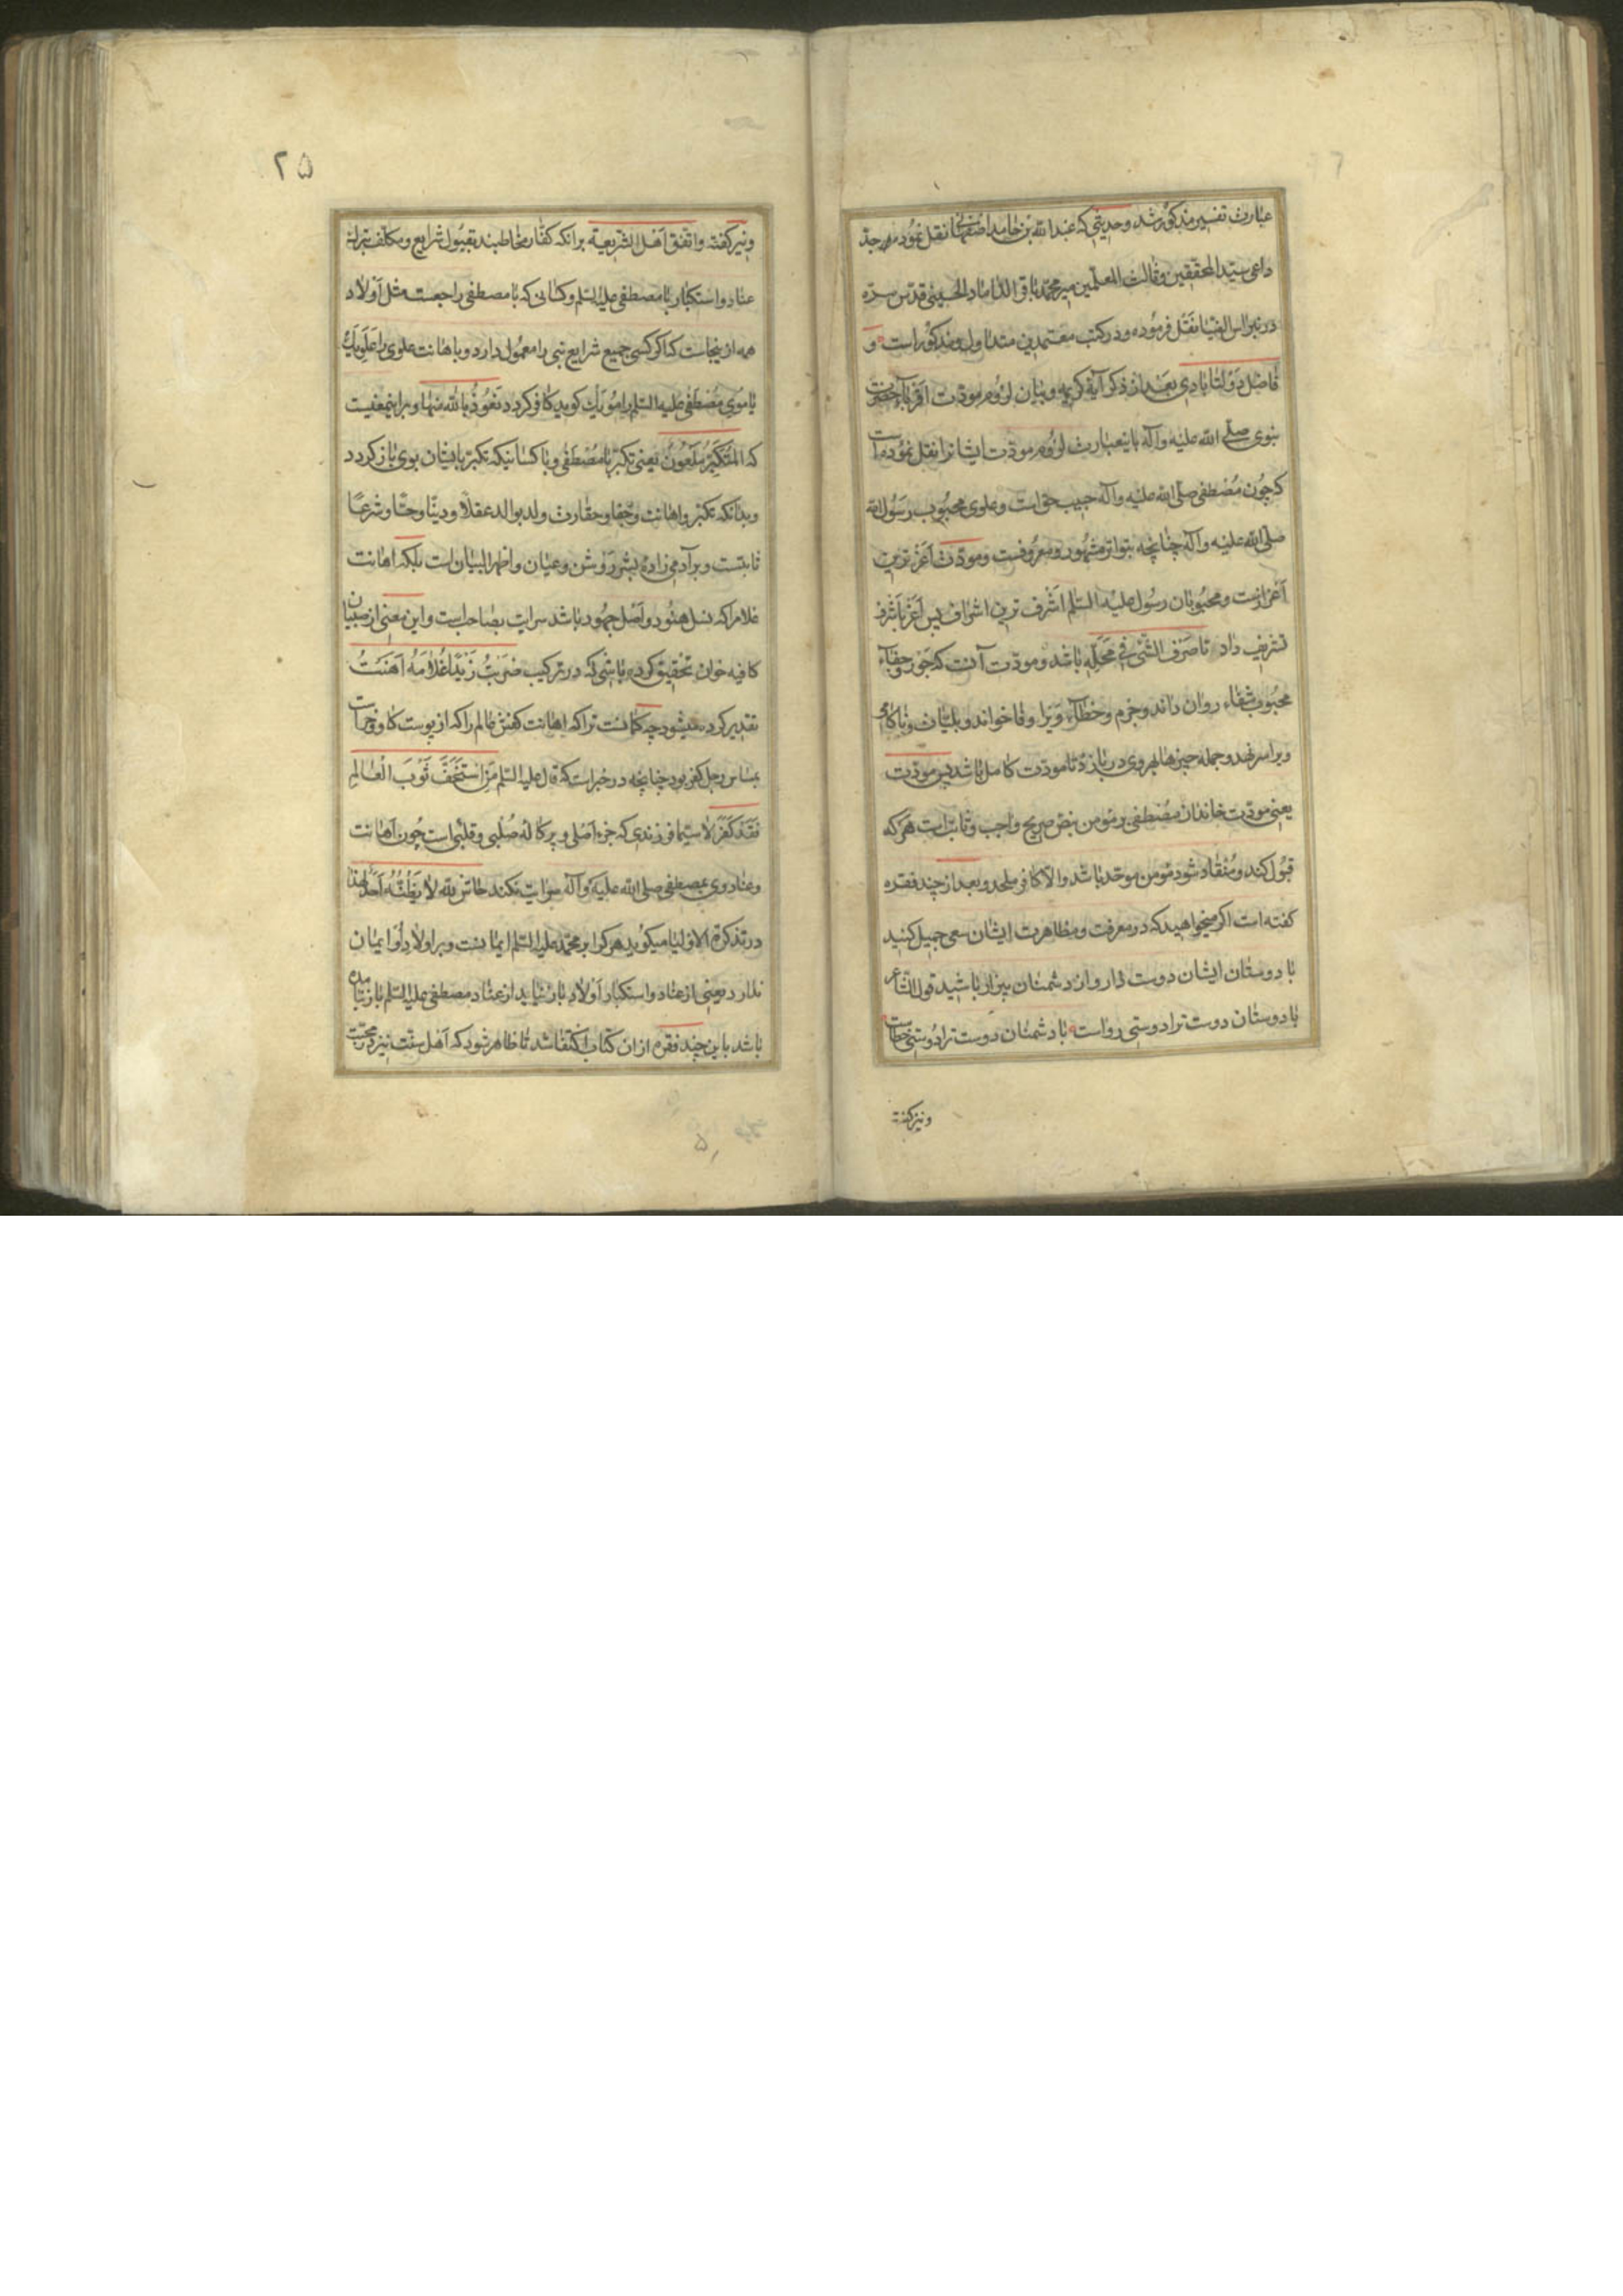 عبارت تفسیر مذکور شد و حدیثی که عبدالله بن حامد اصفهانی نقل نموده جد
داعی سید المحققین و ثالث المعلمین میر محمد باقر الداماد الحسینی قدس سره
در نبراس الضیا نقل فرموده و در کتب معتمدین متداول و مذکور است و
فاضل دولتابادی بعد از ذکر آیه کریمه و بیان لزوم مودت اقرباء حضرت
نبوی صلی الله علیه وآله باینعبارت لزوم مودت ایشانرا نقل نموده است
که چون مصطفی صلی الله علیه وآله حبیب حق است و علوی محبوب رسول الله
صلی الله علیه وآله چنانچه بتواتر مشهور و معروفست و مودت اعز ترین
اعزازست و محبوبان رسول علیه السلم اشرف ترین اشراف پس اعز باشرف
تشریف داد تا صرف الشئ فی محله باشد و مودت آنست که جور و جفاء
محبوب شفاء روان داند و جرم و خطاء ویرا وفا خواند و بلیان و ناکامی
ویرا سر نهد و جمله چیزها بهر وی در بازد تا مودت کامل باشد پس مودت
یعنی مودت خاندان مصطفی بر مؤمن بنص صریح واجب و ثابت است هر که
قبول کند و منقاد شود مؤمن موحد باشد والا کافر ملحد و بعد از چند فقره
کفته است اکر میخواهید که در معرفت و مظاهرت ایشان سعی جمیل کنید
با دوستان ایشان دوست دار و از دشمنان بیزار باشید قول الشاعر
با دوستان دوست ترا دوستی رواست با دشمنان دوست ترا دوستی خطاست
ونیز کفته
۲۵
ونیز کفته واتفق اهل الشریعة برانکه کفار مخاطبند بقبول شرایع و مکلف بترک
عناد و استکبار با مصطفی علیه السلم و کسانی که با مصطفی راجعست مثل اولاد
همه ازینجاست که اکر کسی جمیع شرایع نبی را معمول دارد و باهانت علوی را علویک
یا موی مصطفی علیه السلم را مویک کوید کافر کردد نعوذ بالله منها و براینمعنیست
که المتکبر ملعون یعنی تکبر با مصطفی و با کسانیکه تکبر بافیشان بوی باز کردد
وبدانکه تکبر و اهانت و جفا و حقارت ولد بوالد عقلا و دینا و حسا و شرعا
ثابتست و بر آدمی زاده بشر روشن و عیان و اظهر البیان است بلکه اهانت
غلام را که نسل هنود و اصل جهود باشد سرایت بصاحب است و این معنی از صبیان
کافیه خوان تحقیق کرده باشی که در ترکیب ضربت زیدا غلامه اهنت
تقدیر کرده میشود چه کمانست ترا که اهانت کفش عالم را که از پوست کاو و خر است
بمساس رجل کفر بود چنانچه در خبر است که قال علیه السلم من استخف ثوب العالم
فقد کفر لا سیما فرزندی که جزء اصلی و پرکاله صلبی و قلبی است چون اهانت
وعناد وی بمصطفی صلی الله علیه وآله سرایت نکند حاش لله لا یظنه احد لهذا
در تذکرة الاولیا میکوید هر کرا بر محمد علیه السلم ایمانست و بر اولاد او ایمان
ندارد یعنی از عناد و استکبار اولاد باز نیاید از عناد مصطفی علیه السلم باز نیامده
باشد باین چند فقره از ان کتاب اکتفا شد تا ظاهر شود که اهل سنت نیز در محبت